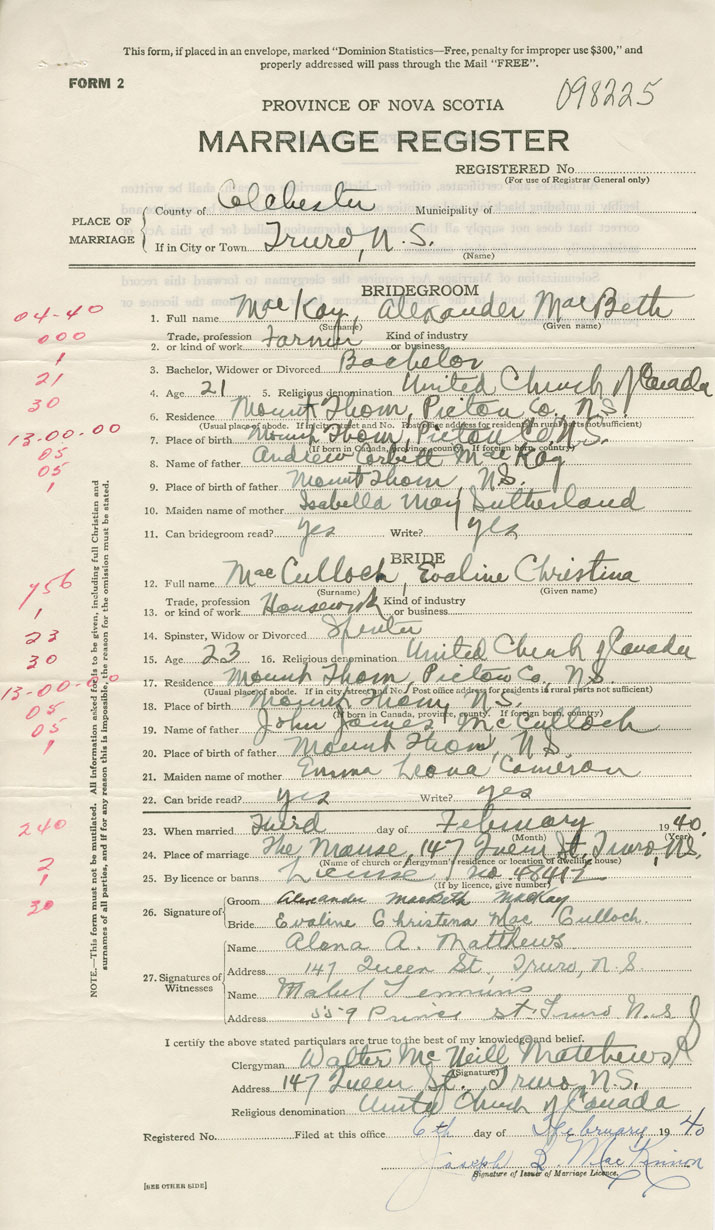 This form, if placed in an envelope, marked "Dominion Statistics—Free, penalty for improper use $300," and
properly addressed will pass through the Mail "FREE".
FORM 2
098225
PROVINCE OF NOVA SCOTIA
MARRIAGE REGISTER
REGISTERED No.
(For use of Registrar General only)
PLACE OF MARRIAGE
County of Colchester Municipality of
If in City or Town Truro, N.S.
(Name)
BRIDEGROOM
04-40
1. Full name MacKay, Alexander MacBeth
(Surname) (Given name)
000
2. Trade, profession or kind of work Farmer Kind of industry or business
1
3. Bachelor, Widower or Divorced Bachelor
21
4. Age 21 5. Religious denomination United Church of Canada
30
6. Residence Mount Thom, Pictou Co., N.S.
(Usual place of abode. If in city street and No. Post office address for residents in rural parts not sufficient)
13-00-00
7. Place of birth Mount Thom, Pictou Co., N.S.
(If born in Canada, province, county. If foreign born, country)
05
8. Name of father Andrew Corbett MacKay
05
9. Place of birth of father Mount Thom, N.S.
1
10. Maiden name of mother Isabella May Sutherland
11. Can bridegroom read? yes Write? yes
BRIDE
756
12. Full name MacCulloch, Evaline Christina
(Surname) (Given name)
1
13. Trade, profession or kind of work Housework Kind of industry or business
23
14. Spinster, Widow or Divorced Spinster
30
15. Age 23 16. Religious denomination United Church of Canada
13-00-00
17. Residence Mount Thom, Pictou Co., N.S.
(Usual place of abode. If in city street and No. Post office address for residents in rural parts not sufficient)
05
18. Place of birth Mount Thom, N.S.
(If born in Canada, province, county. If foreign born, country)
05
19. Name of father John James McCulloch
1
20. Place of birth of father Mount Thom, N.S.
21. Maiden name of mother Emma Leona Cameron
22. Can bride read? yes Write? yes
240
23. When married Third day of February 1940
(Month) (Year)
24. Place of marriage The Manse, 147 Queen St., Truro, N.S.
(Name of church or clergyman's residence or location of dwelling house)
2
1
25. By licence or banns License no. 48412
(If by licence, give number)
30
26. Signature of
Groom Alexander MacBeth MacKay
Bride Evaline Christena MacCulloch.
27. Signatures of Witnesses
Name Alena A. Matthews
Address 147 Queen St, Truro, N.S
Name Mabel
Address 559 Prince St Truro N.S
I certify the above stated particulars are true to the best of my knowledge and belief.
Clergyman Walter McNeill Matthews
(Signature)
Address 147 Queen St. Truro, N.S.
Religious denomination United Church of Canada
Registered No. Filed at this office 6th day of February 1940
Joseph MacKinnon
Signature of Issuer of Marriage Licence.
[SEE OTHER SIDE]
NOTE.—This form must not be mutilated. All information asked for is to be given, including full Christian and
surnames of all parties, and if for any reason this is impossible, the reason for the omission must be stated.